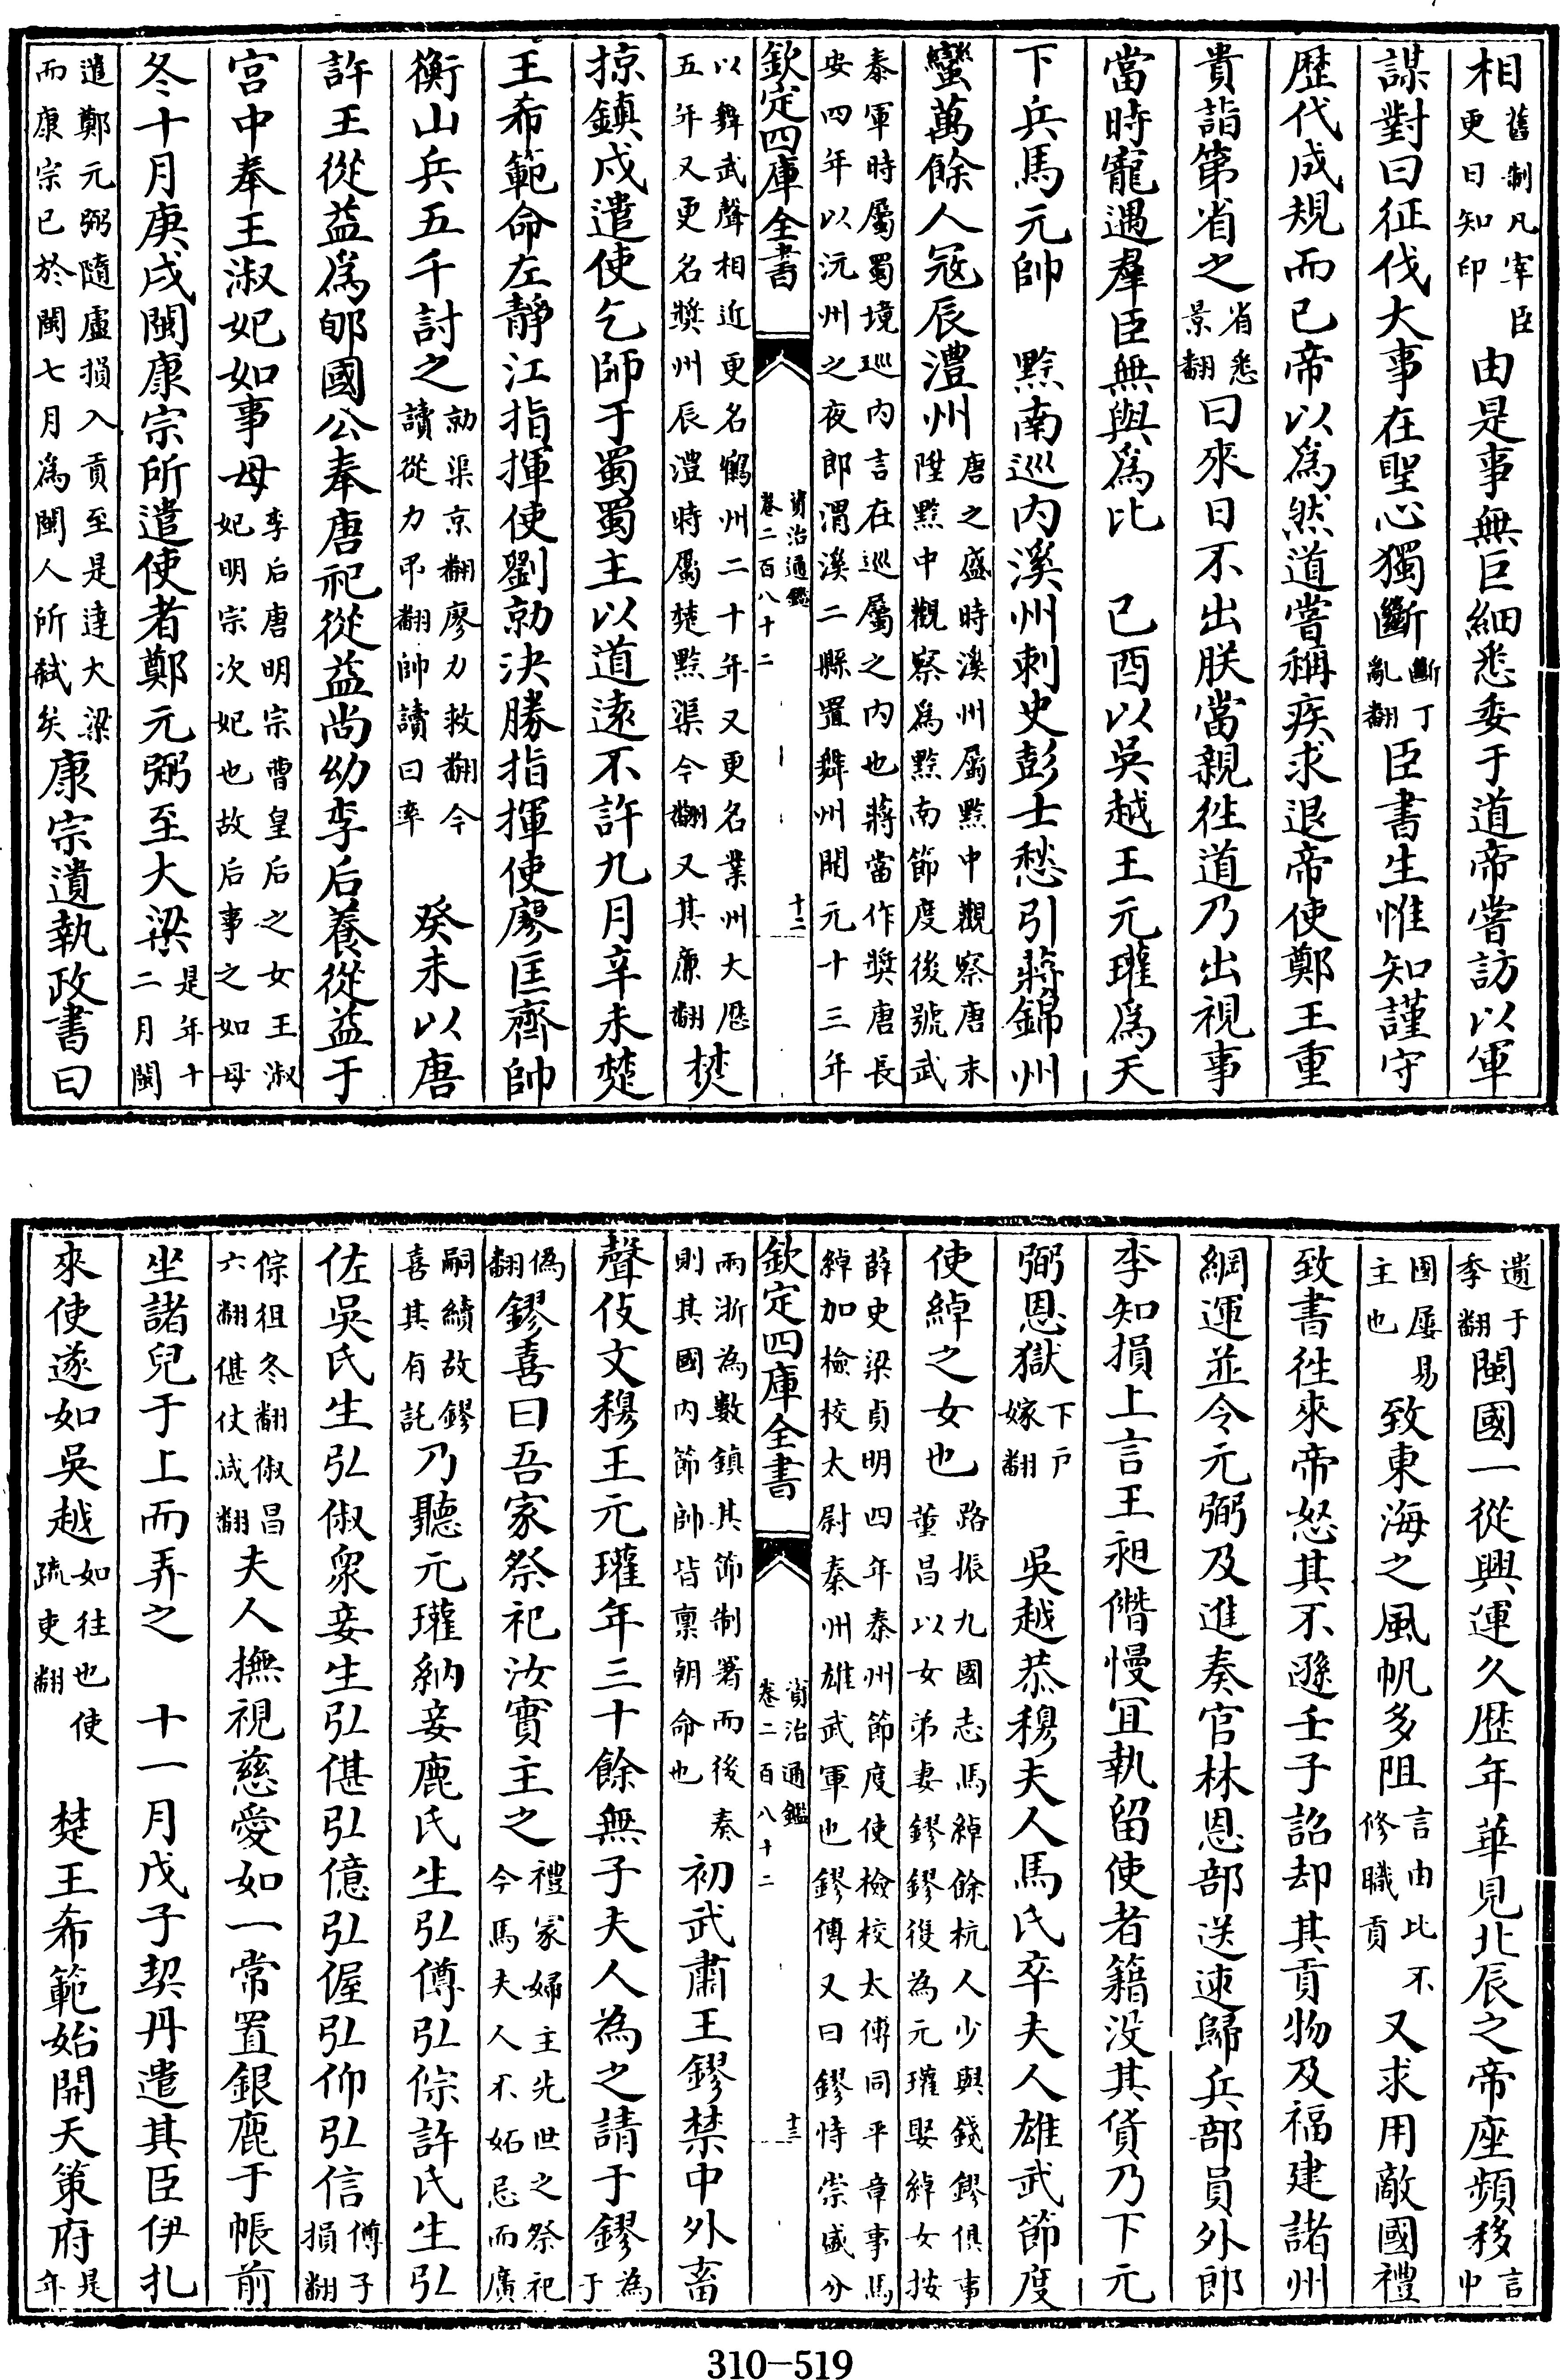 相舊制凡宰臣更日知印由是事無巨細悉委于道帝嘗訪以軍
謀對曰征伐大事在聖心獨斷斷丁亂翻臣書生惟知謹守
歴代成規而已帝以爲然道嘗稱疾求退帝使鄭王重
貴詣第省之省悉景翻曰來日不出朕當親徃道乃出視事
當時寵遇羣臣無與爲比　己酉以吳越王元瓘爲天
下兵馬元帥　黔南巡内溪州刺史彭士愁引蔣錦州
蠻萬餘人冦辰澧州唐之盛時溪州屬黔中觀察唐末陞黔中觀察爲黔南節度後號武
泰軍時屬蜀境巡内言在巡屬之内也蔣當作奬唐長安四年以沅州之夜郎渭溪二縣置舞州開元十三年
欽定四庫全書　資治通鑑卷二百八十二　十二
以舞武聲相近更名鶴州二十年又更名業州大厯五年又更名奬州辰澧時屬楚黔渠今翻又其廉翻焚
掠鎮戍遣使乞師于蜀蜀主以道逺不許九月辛未楚
王希範命左靜江指揮使劉勍決勝指揮使廖匡齊帥
衡山兵五千討之勍渠京翻廖力救翻今讀從力弔翻帥讀曰率　癸未以唐
許王從益爲郇國公奉唐祀從益尚幼李后養從益于
宫中奉王淑妃如事母李后唐明宗曹皇后之女王淑妃明宗次妃也故后事之如母
冬十月庚戌閩康宗所遣使者鄭元弼至大梁是年十二月閩
遣鄭元弼隨盧損入貢至是達大梁而康宗已於閩七月爲閩人所弑矣康宗遺執政書曰
遺于季翻閩國一從興運久歴年華見北辰之帝座頻移言中
國屢易主也致東海之風帆多阻言由此不修職貢又求用敵國禮
致書徃來帝怒其不遜壬子詔却其貢物及福建諸州
綱運並令元弼及進奏官林恩部送速歸兵部員外郎
李知損上言王昶僭慢宜執留使者籍没其貨乃下元
弼恩獄下戸嫁翻　吳越恭穆夫人馬氏卒夫人雄武節度
使綽之女也路振九國志馬綽餘杭人少與錢鏐俱事董昌以女弟妻鏐鏐復為元瓘娶綽女按
薛史梁貞明四年秦州節度使檢校太傅同平章事馬綽加檢校太尉秦州雄武軍也鏐傳又曰鏐恃崇盛分
欽定四庫全書　資治通鑑卷二百八十二　十三
兩浙為數鎮其節制署而後奏則其國内節帥皆禀朝命也　初武肅王鏐禁中外畜
聲伎文穆王元瓘年三十餘無子夫人為之請于鏐為于
偽翻鏐喜曰吾家祭祀汝實主之禮冢婦主先世之祭祀今馬夫人不妬忌而廣
嗣續故鏐喜其有託乃聽元瓘納妾鹿氏生弘僔弘倧許氏生弘
佐吳氏生弘俶衆妾生弘偡弘億弘偓弘仰弘信僔子損翻
倧徂冬翻俶昌六翻偡仗減翻夫人撫視慈愛如一常置銀鹿于帳前
坐諸兒于上而弄之　十一月戊子契丹遣其臣伊扎
來使遂如吳越如往也使疏吏翻　楚王希範始開天策府是年
310-519